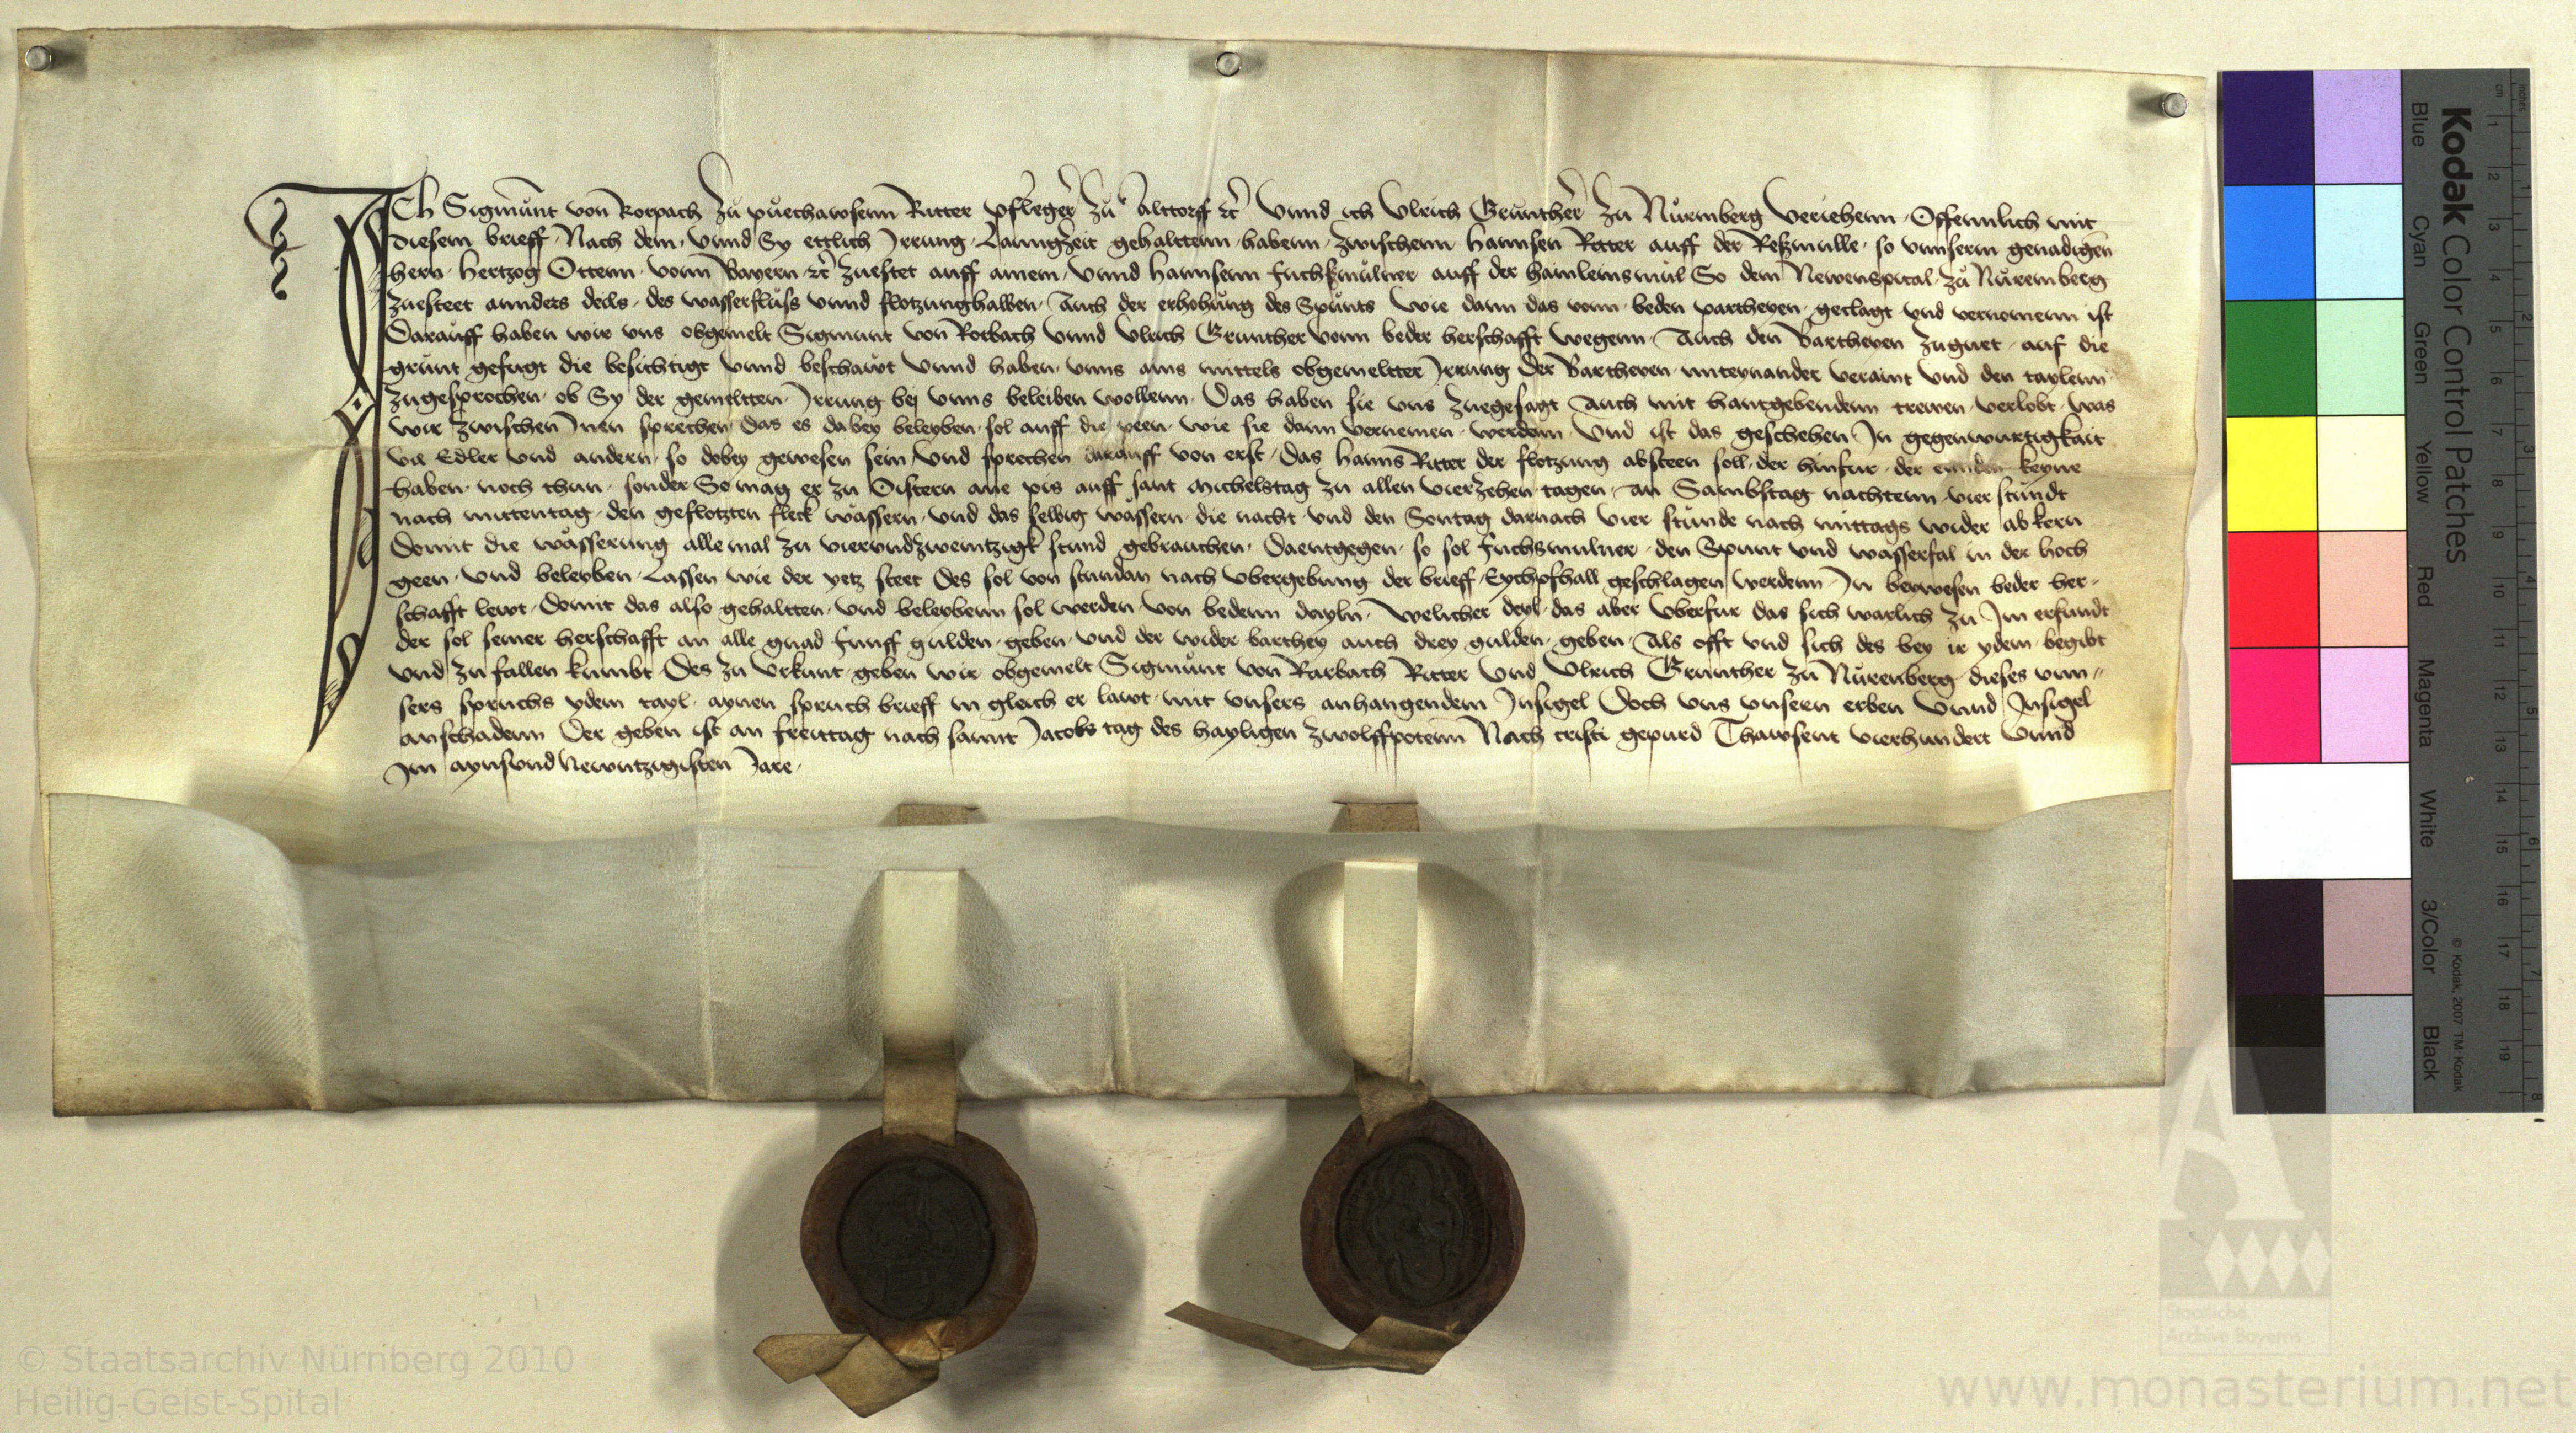 ICh Sigmunt von Rorpach zu puechawsenn Ritter pfleger zu Alttorff rc̃ Unnd ich Ulrich Grunther zu Nurmberg Veriehenn Offennlich mit
diesem brieff Nach dem Unnd Sy ettlich Irrung Lanngzeit gehalttenn habenn zwischenn hannsen Ritter auff der Reßmulle so unnserm genadigen
hern hertzog Ottenn vonn Bayern rc̃ zustet auff ainem Unnd hannsenn fuchsmulner auff der hainlemsmul So dem Newenspital zu Nuremberg
zusteet annders deils des wasserfluss unnd flotzunghalben Auch der erhohung des Spunts wie dann das vonn beden partheyen geclagt und vernomenn ist
Darauff haben wir uns obgemelt Sigmunt von Rorbach Unnd Ulrich Grunther vonn beder herschafft wegenn Auch den Bartheyen zuguet auf die
grunt gefugt die besichtigt Unnd beschawt Unnd haben unns ains mittels obgemeltter Irrung der Bartheyen unteynander veraint Und den taylenn
zugesprochen ob Sy der gemeltten Irrung bej unns beleiben wollenn Das haben sie uns zuegesagt Auch mit hantgebendenn trewen verlobt was
wir zwischen Inen sprechen das es dabey beleyben sol auff die peen wie sie dann vernemen werdenn Und ist das geschehen In gegenwurtigkait
vil Edler und andern so dobey gewesen sein Und sprechen darauff von erst Das hanns Ritter der flotzung absteen soll der hinfur der keyne
haben noch thun sonder So mag er zu Ostern ane pis auff sant michelstag zu allen vierzehen tagen an Sambstag nachtenn vier stundt
nach mittentag den geflotzten fleck wassern und das selbig wassern die nacht und den Sontag darnach vier stunde nach mittags wider abkern
Domit die wasserung alle mal zu vierundzweintzigk stund gebrauchen Daentgegen so sol fuchsmulner den Spunt und wasserfal in der hoch
geen und beleyben Lassen wie der yetz steet Des sol von stundan nach ubergebung der brieff Eychpfhall geschlagen werdenn In beywesen beder her-
schafft lewt Domit das also gehaltten und beleybenn sol werden von bedenn dayln welicher deyl das aber uberfur das sich warlich zu Im erfundt
der sol seiner herschafft an alle gnad funff gulden geben und der wider barthey auch drey gulden geben Als offt und sich des bey ir ydem begibt
Und zu fallen kumbt Des zu Urkunt geben wir obgemelt Sigmunt von Rarbach Ritter Und Ulrich Grunther zu Nurenberg dieses unn-
sers spruchs ydem tayl aynen spruch brieff in gleich er lawt mit unsers anhangendem Insigel Doch uns unsern erben Unnd Insigel
anschadenn Der geben ist an freittag nach sannt Jacobs tag des hayligen zwolffpotenn Nach cristi gepurd Thawsent vierhundert Unnd
Im aynsundnewntzigisten Jare
Kodak Color Control Patches
Blue Cyan Green Yellow Red Magenta White 3/Color Black
© Kodak, 2007 TM: Kodak
cm 1 2 3 4 5 6 7 8 9 10 11 12 13 14 15 16 17 18 19
inches 1 2 3 4 5 6 7 8
Staatliche
Archive Bayerns
© Staatsarchiv Nürnberg 2010
Heilig-Geist-Spital
www.monasterium.net